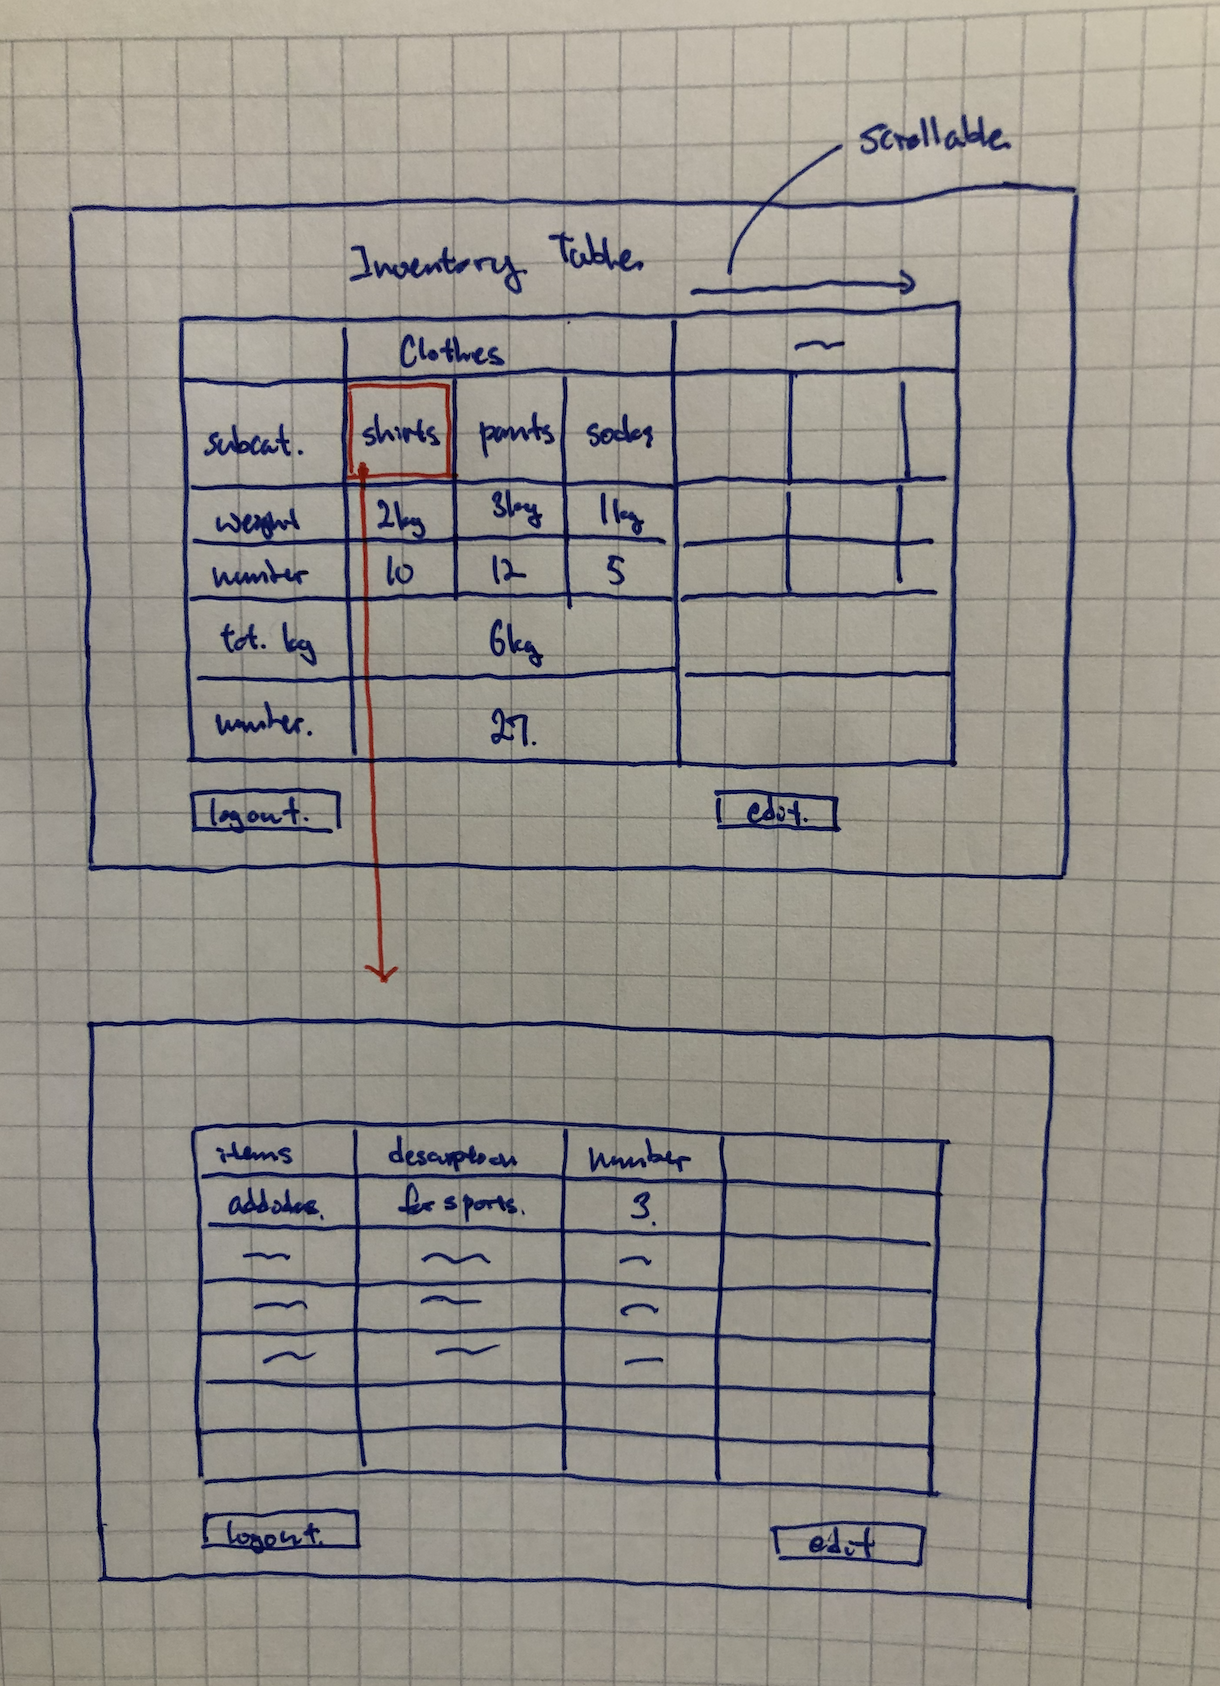 Scrollable
Inventory Table
Clothes ~
subcat. shirts pants socks
weight 2kg 3kg 1kg
number 10 12 5
tot. kg 6kg
number. 27.
logout. edit.
items description number
addidas. for sports. 3.
logout. edit